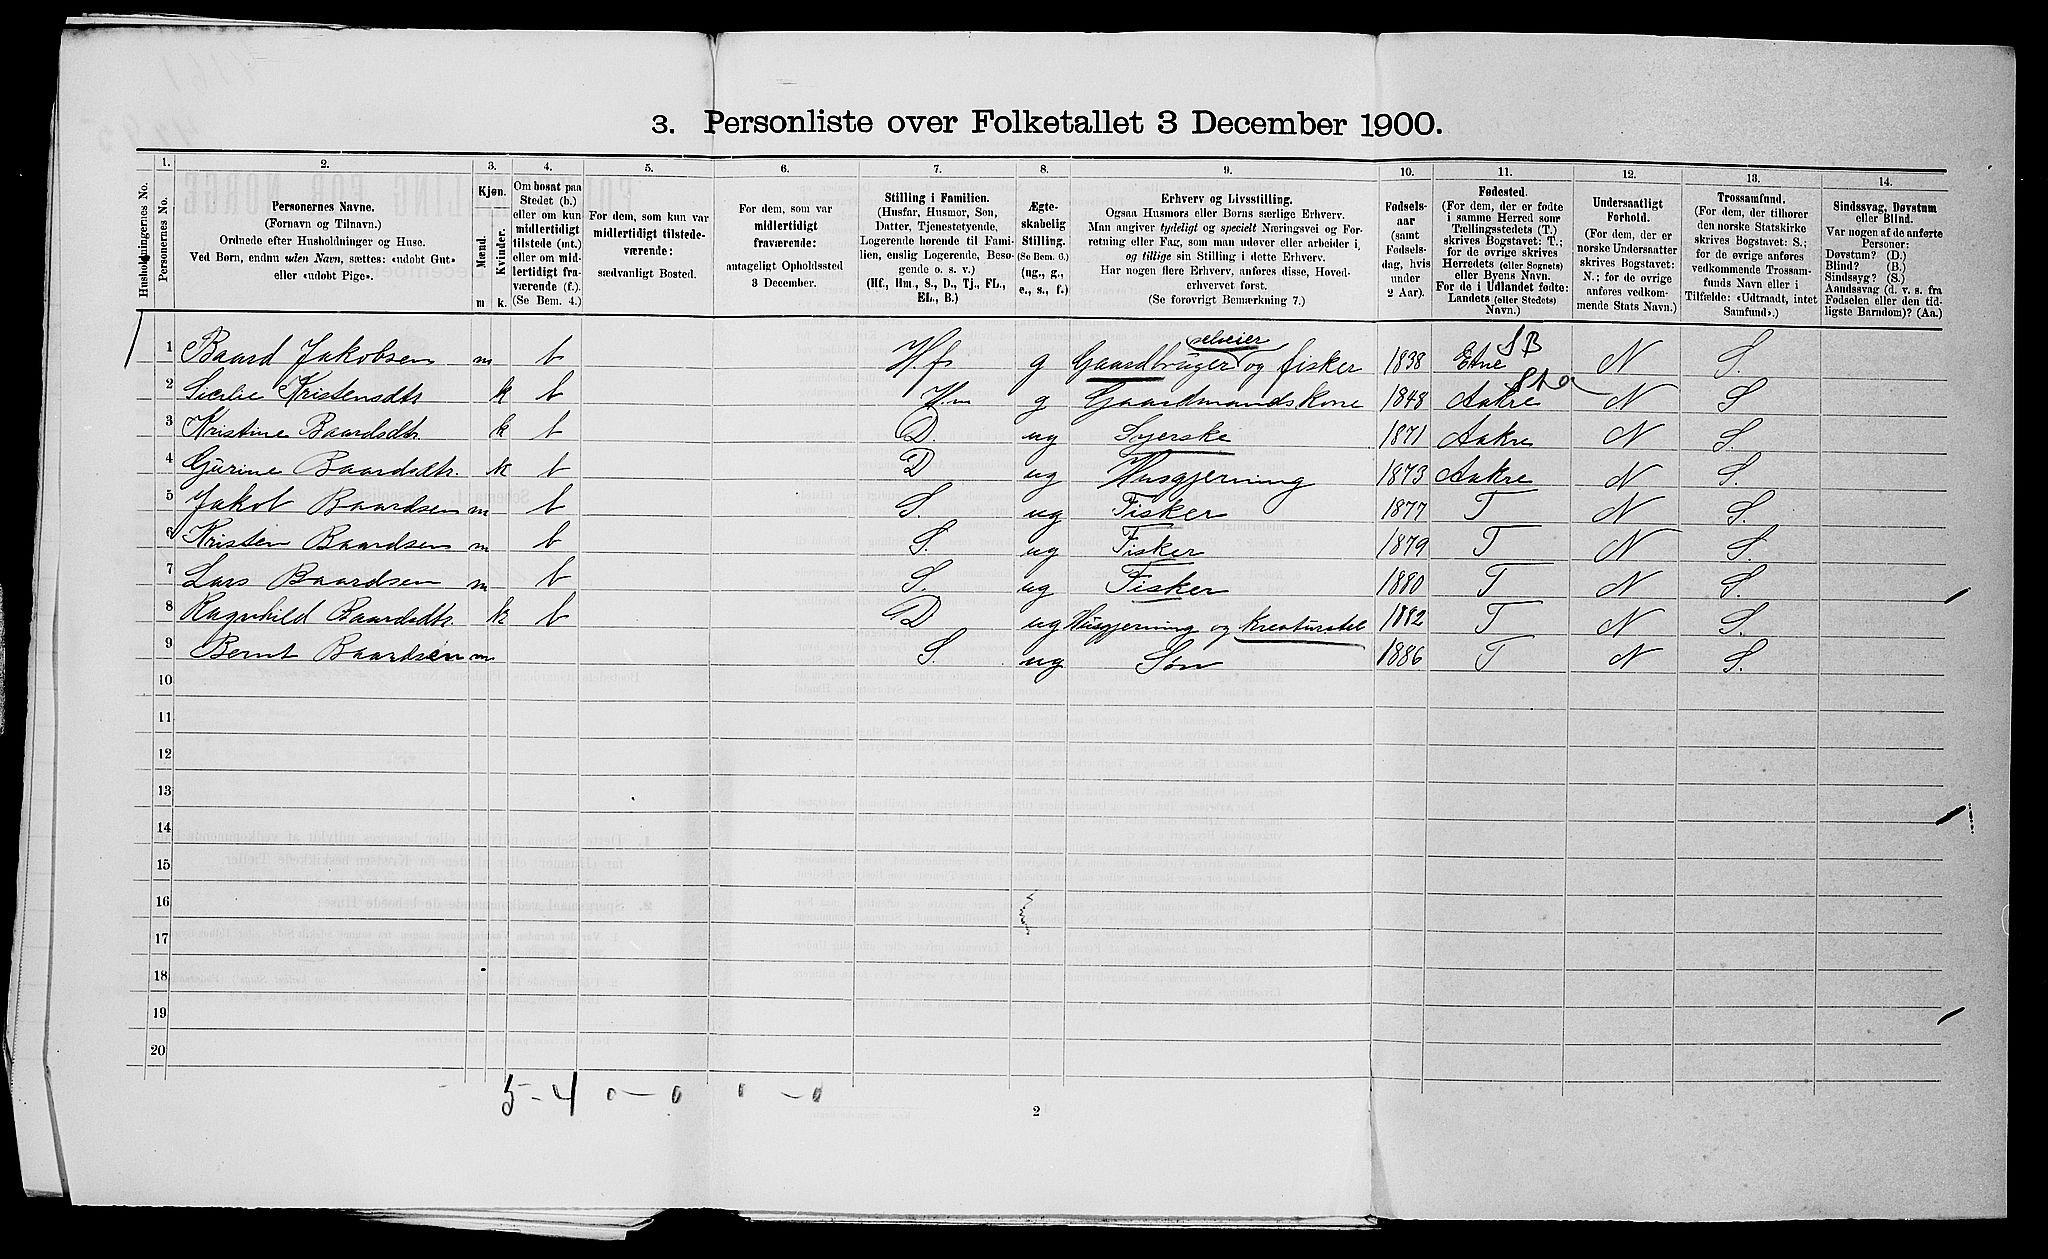 3. Personliste over Folketallet 3 December 1900.
Husholdningernes No.
1. Personernes No.
2. Personernes Navne.
(Fornavn og Tilnavn.)
Ordnede efter Husholdninger og Huse.
Ved Børn, endnu uden Navn, sættes: «udøbt Gut»
eller «udøbt Pige».
3. Kjøn.
Mænd. Kvinder.
m k.
4. Om bosat paa
Stedet (b.)
eller om kun
midlertidigt
tilstede (mt.)
eller om mid-
lertidigt fra-
værende (f.).
(Se Bem. 4.)
5. For dem, som kun var
midlertidigt tilstede-
værende:
sædvanligt Bosted.
6. For dem, som var
midlertidigt
fraværende:
antageligt Opholdssted
3 December.
7. Stilling i Familien.
(Husfar, Husmor, Søn,
Datter, Tjenestetyende,
Logerende hørende til Fami-
lien, enslig Logerende, Besø-
gende o. s. v.)
(Hf., Hm., S., D., Tj., FL.,
EL., B.)
8. Ægte-
skabelig
Stilling.
(Se Bem. 6.)
(ug., g.,
e., s., f.)
9. Erhverv og Livsstilling.
Ogsaa Husmors eller Børns særlige Erhverv.
Man angiver tydeligt og specielt Næringsvei og For-
retning eller Fag, som man udøver eller arbeider i,
og tillige sin Stilling i dette Erhverv.
Har nogen flere Erhverv, anføres disse, Hoved-
erhvervet først.
(Se forøvrigt Bemærkning 7.)
10. Fødsels-
aar
(samt
Fødsels-
dag, hvis
under
2 Aar).
11. Fødested.
(For dem, der er fødte
i samme Herred som
Tællingsstedets (T.)
skrives Bogstavet: T.;
for de øvrige skrives
Herredets (eller Sognets)
eller Byens Navn.
For de i Udlandet fødte:
Landets (eller Stedets)
Navn.)
12. Undersaatligt
Forhold.
(For dem, der er
norske Undersaatter
skrives Bogstavet:
N.; for de øvrige
anføres vedkom-
mende Stats Navn.)
13. Trossamfund.
(For dem, der tilhører
den norske Statskirke
skrives Bogstavet: S.;
for de øvrige anføres
vedkommende Trossam-
funds Navn eller i
Tilfælde: «Udtraadt, intet
Samfund».)
14. Sindssvag, Døvstum
eller Blind.
Var nogen af de anførte
Personer:
Døvstum? (D.)
Blind? (B.)
Sindssyg? (S.)
Aandssvag (d. v. s. fra
Fødselen eller den tid-
ligste Barndom)? (Aa.)
selveier SB
1 1 Baard Jakobsen m b H.f g Gaardbruger og fisker 1838 Etne N S.
2 Kristensdtr k b H.m g Gaardmandskone 1848 Aakre N S
3 Kristine Baardsdtr. k b D. ug Syerske 1871 Aakre N S.
4 Gurine Baardsdtr. k b D ug Husgjerning 1873 Aakre N S.
5 Jakob Baardsen m b S. ug Fisker 1877 T N S.
6 Kristen Baardsen m b S. ug Fisker 1879 T N S.
7 Lars Baardsen m b S. ug Fisker 1880 T N S.
8 Ragnhild Baardsdtr. k b D ug Husgjerning og Kreaturstel 1882 T N S.
9 Bernt Baardsen m S. ug Søn 1886 T N S.
10
11
12
13
14
15
16
17
18
19
20
5-4 0-0 0-0
2